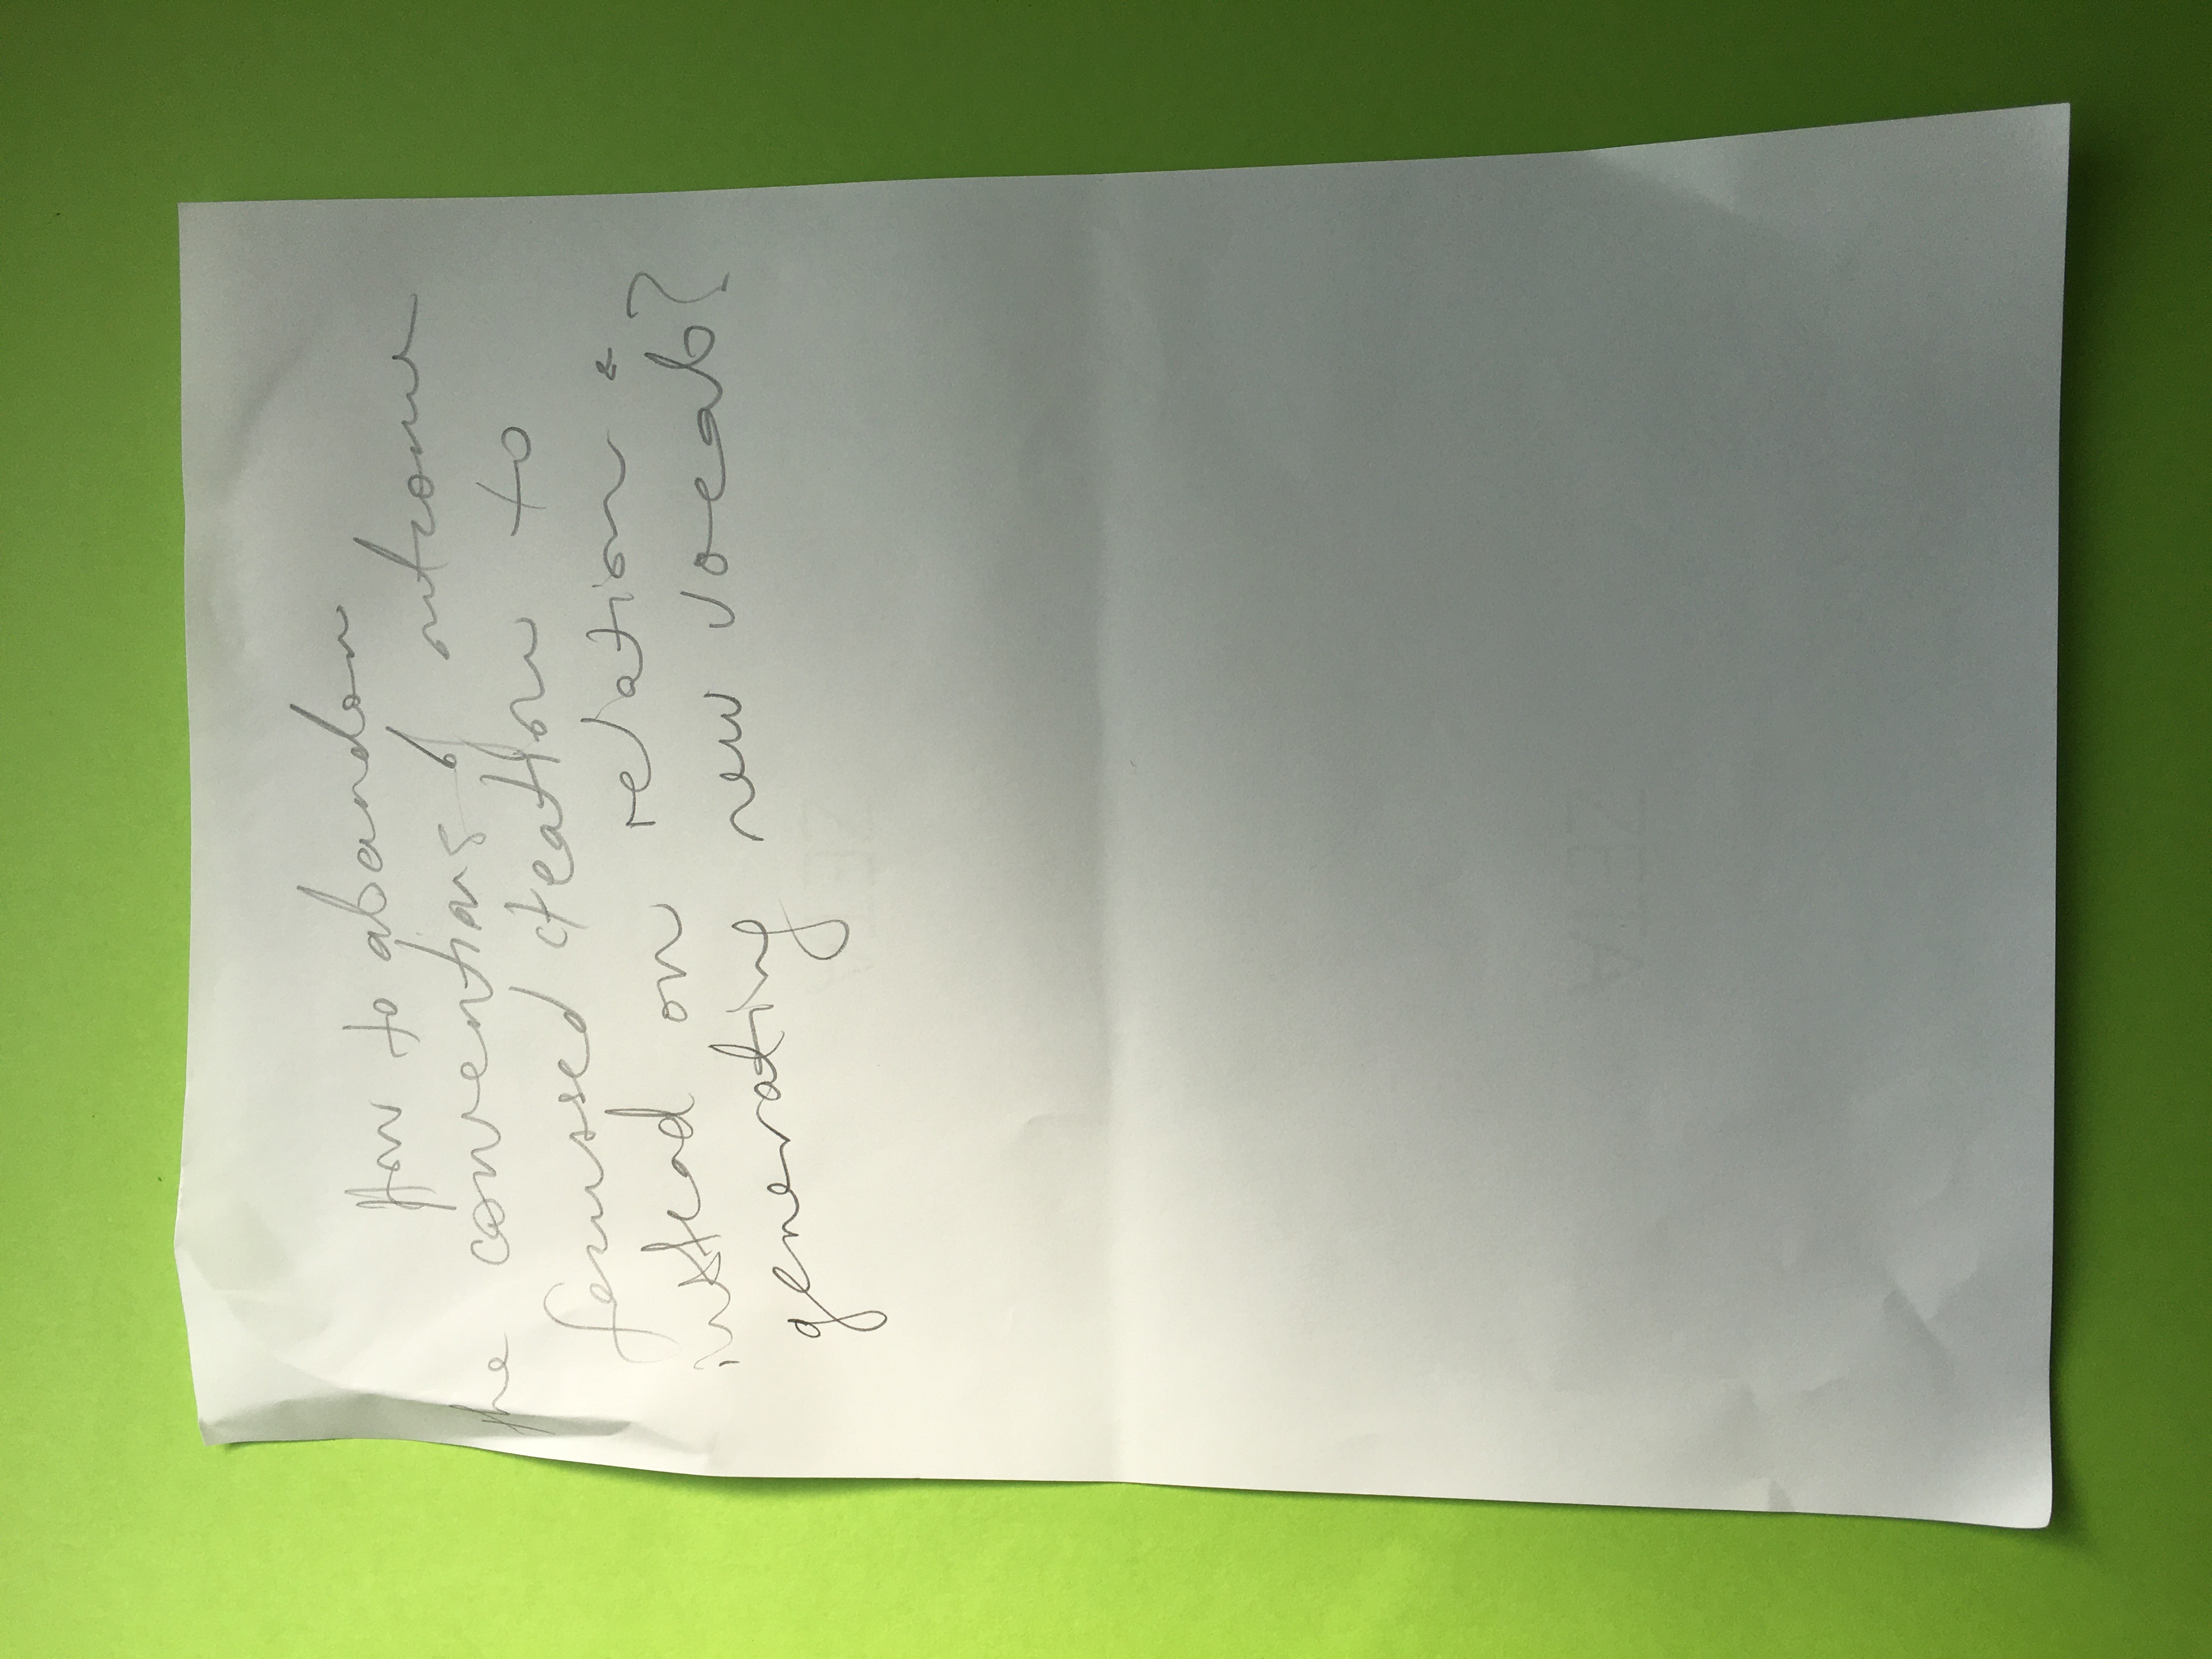 How to abandon
the conventions of outcome
focussed creation to
instead on relation &
generating new vocab?
ZETA
ZETA